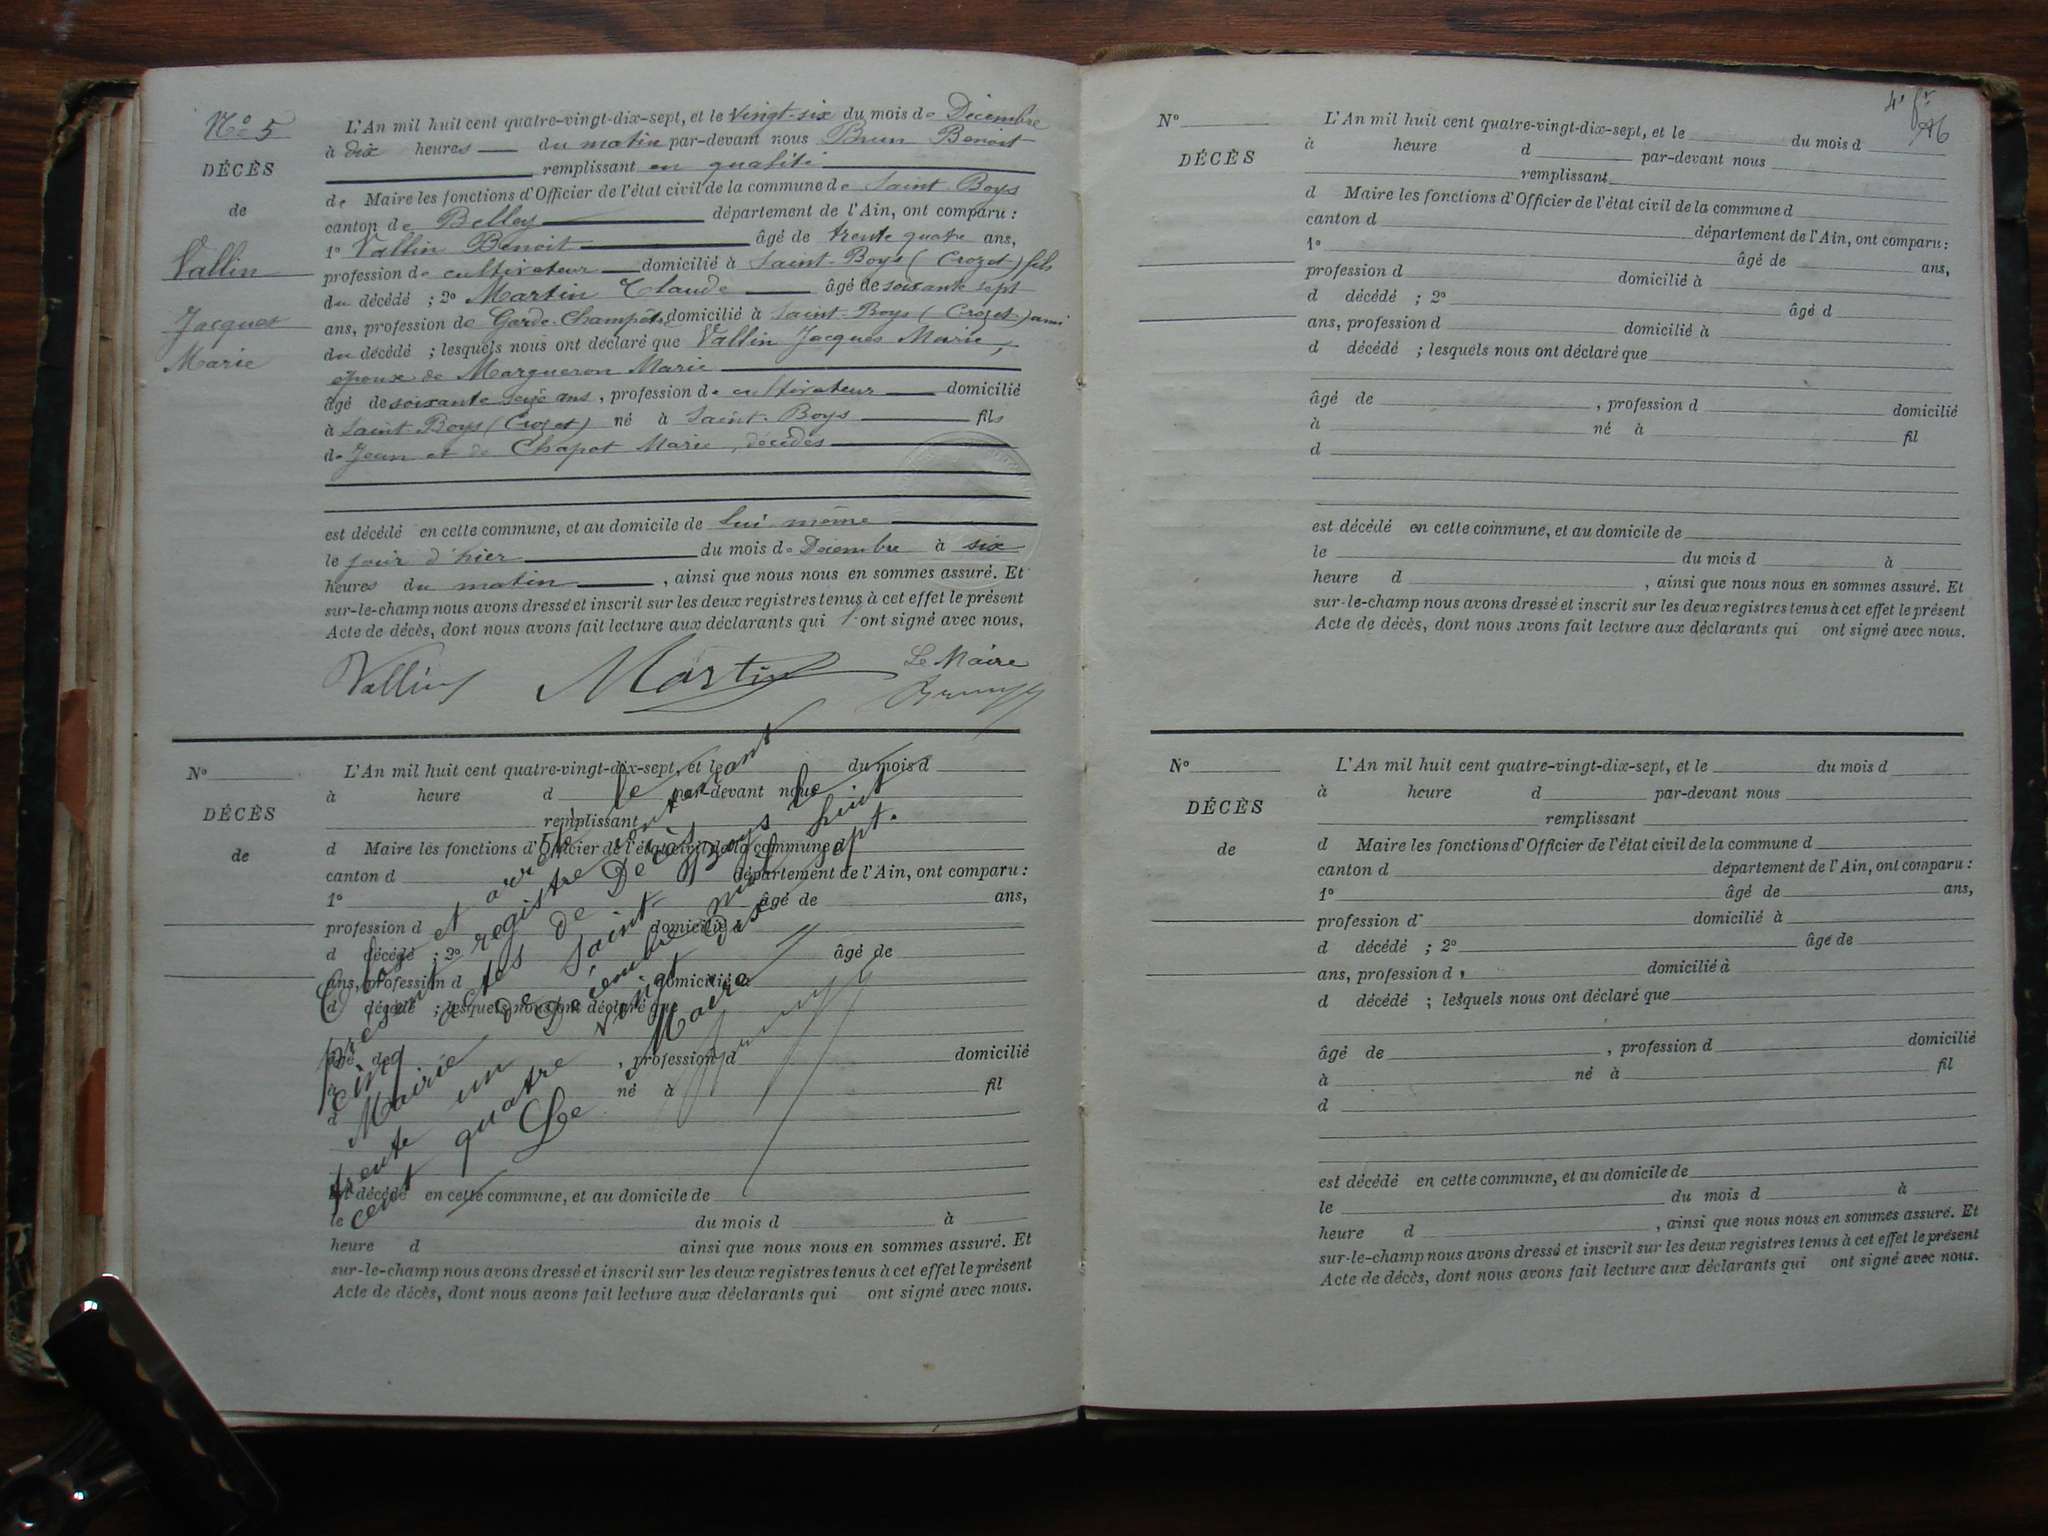 N° 5
DÉCÈS
de
Vallin
Jacques
Marie
L'An mil huit cent quatre-vingt-dix-sept, et le vingt-six du mois de Décembre
à dix heures du matin par-devant nous Brun Benoit
remplissant en qualité
de Maire les fonctions d'Officier de l'état civil de la commune de Saint-Boys
canton de Belley département de l'Ain, ont comparu :
1° Vallin Benoit âgé de trente quatre ans,
profession de cultivateur domicilié à Saint-Boys (Crozet) fils
du décédé ; 2° Martin Claude âgé de soixante sept
ans, profession de Garde-Champêtre domicilié à Saint-Boys (Crozet) ami
du décédé ; lesquels nous ont déclaré que Vallin Jacques Marie,
époux de Margueron Marie
âgé de soixante seize ans, profession de cultivateur domicilié
à Saint-Boys (Crozet) né à Saint-Boys fils
de Jean et de Chapot Marie, décédés
est décédé en cette commune, et au domicile de lui même
le jour d'hier du mois de Décembre à six
heures du matin, ainsi que nous nous en sommes assuré. Et
sur-le-champ nous avons dressé et inscrit sur les deux registres tenus à cet effet le présent
Acte de décès, dont nous avons fait lecture aux déclarants qui ont signé avec nous.
Vallin Martin Le Maire
Brun
N°
DÉCÈS
de
L'An mil huit cent quatre-vingt-dix-sept, et le du mois d
à heure d par-devant nous
remplissant
d Maire les fonctions d'Officier de l'état civil de la commune d
canton d département de l'Ain, ont comparu :
1° âgé de ans,
profession d domicilié à
d décédé ; 2° âgé de
ans, profession d domicilié à
d décédé ; lesquels nous ont déclaré que
âgé de , profession d domicilié
à né à fil
d
est décédé en cette commune, et au domicile de
le du mois d à
heure d ainsi que nous nous en sommes assuré. Et
sur-le-champ nous avons dressé et inscrit sur les deux registres tenus à cet effet le présent
Acte de décès, dont nous avons fait lecture aux déclarants qui ont signé avec nous.
Clos et arrêté le
présent registre contenant
cinq actes de Décès
Mairie de Saint-Boys le
trente un Décembre mil huit
cent quatre vingt dix sept.
Le Maire
Brun
N°
DÉCÈS
L'An mil huit cent quatre-vingt-dix-sept, et le du mois d
à heure d par-devant nous
remplissant
d Maire les fonctions d'Officier de l'état civil de la commune d
canton d département de l'Ain, ont comparu :
1° âgé de ans,
profession d domicilié à
d décédé ; 2° âgé d
ans, profession d domicilié à
d décédé ; lesquels nous ont déclaré que
âgé de , profession d domicilié
à né à fil
d
est décédé en cette commune, et au domicile de
le du mois d à
heure d , ainsi que nous nous en sommes assuré. Et
sur-le-champ nous avons dressé et inscrit sur les deux registres tenus à cet effet le présent
Acte de décès, dont nous avons fait lecture aux déclarants qui ont signé avec nous.
N°
DÉCÈS
de
L'An mil huit cent quatre-vingt-dix-sept, et le du mois d
à heure d par-devant nous
remplissant
d Maire les fonctions d'Officier de l'état civil de la commune d
canton d département de l'Ain, ont comparu :
1° âgé de ans,
profession d domicilié à
d décédé ; 2° âgé de
ans, profession d domicilié à
d décédé ; lesquels nous ont déclaré que
âgé de , profession d domicilié
à né à fil
d
est décédé en cette commune, et au domicile de
le du mois d à
heure d , ainsi que nous nous en sommes assuré. Et
sur-le-champ nous avons dressé et inscrit sur les deux registres tenus à cet effet le présent
Acte de décès, dont nous avons fait lecture aux déclarants qui ont signé avec nous.